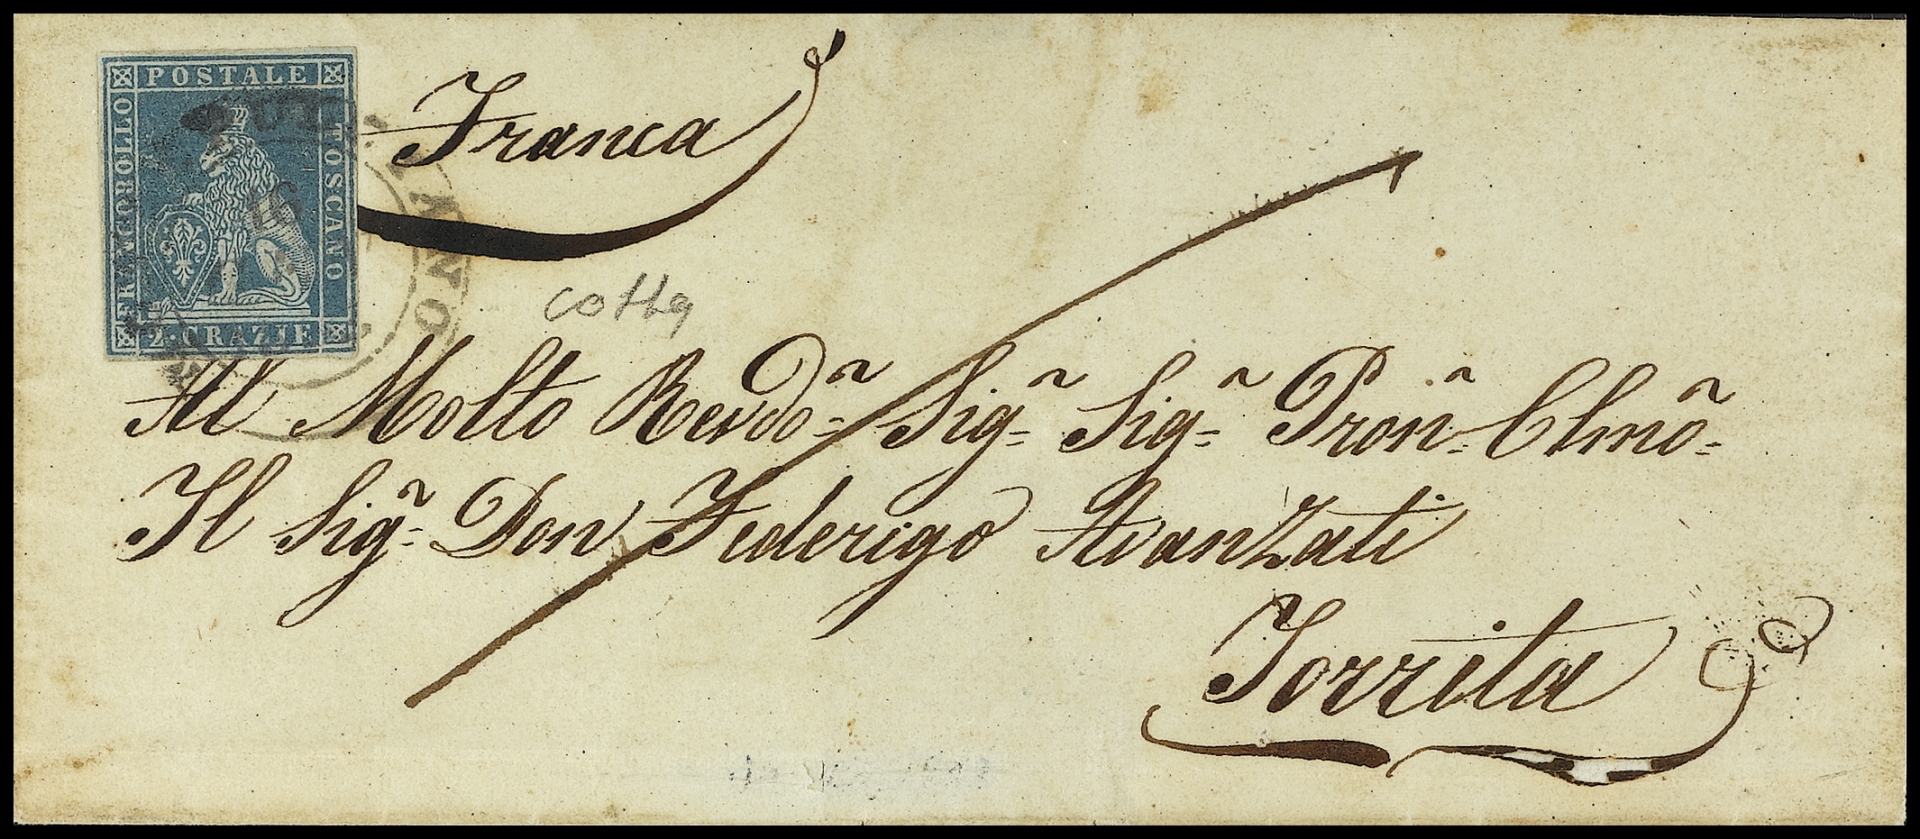 POSTALE
FRANCOBOLLO
TOSCANO
2·CRAZIE
Franca
Al Molto Revdõ= Sigr̃= Sigr̃= Pron̄= Clmõ=
Il Sigr̃= Don Federigo Avanzati
Torrita